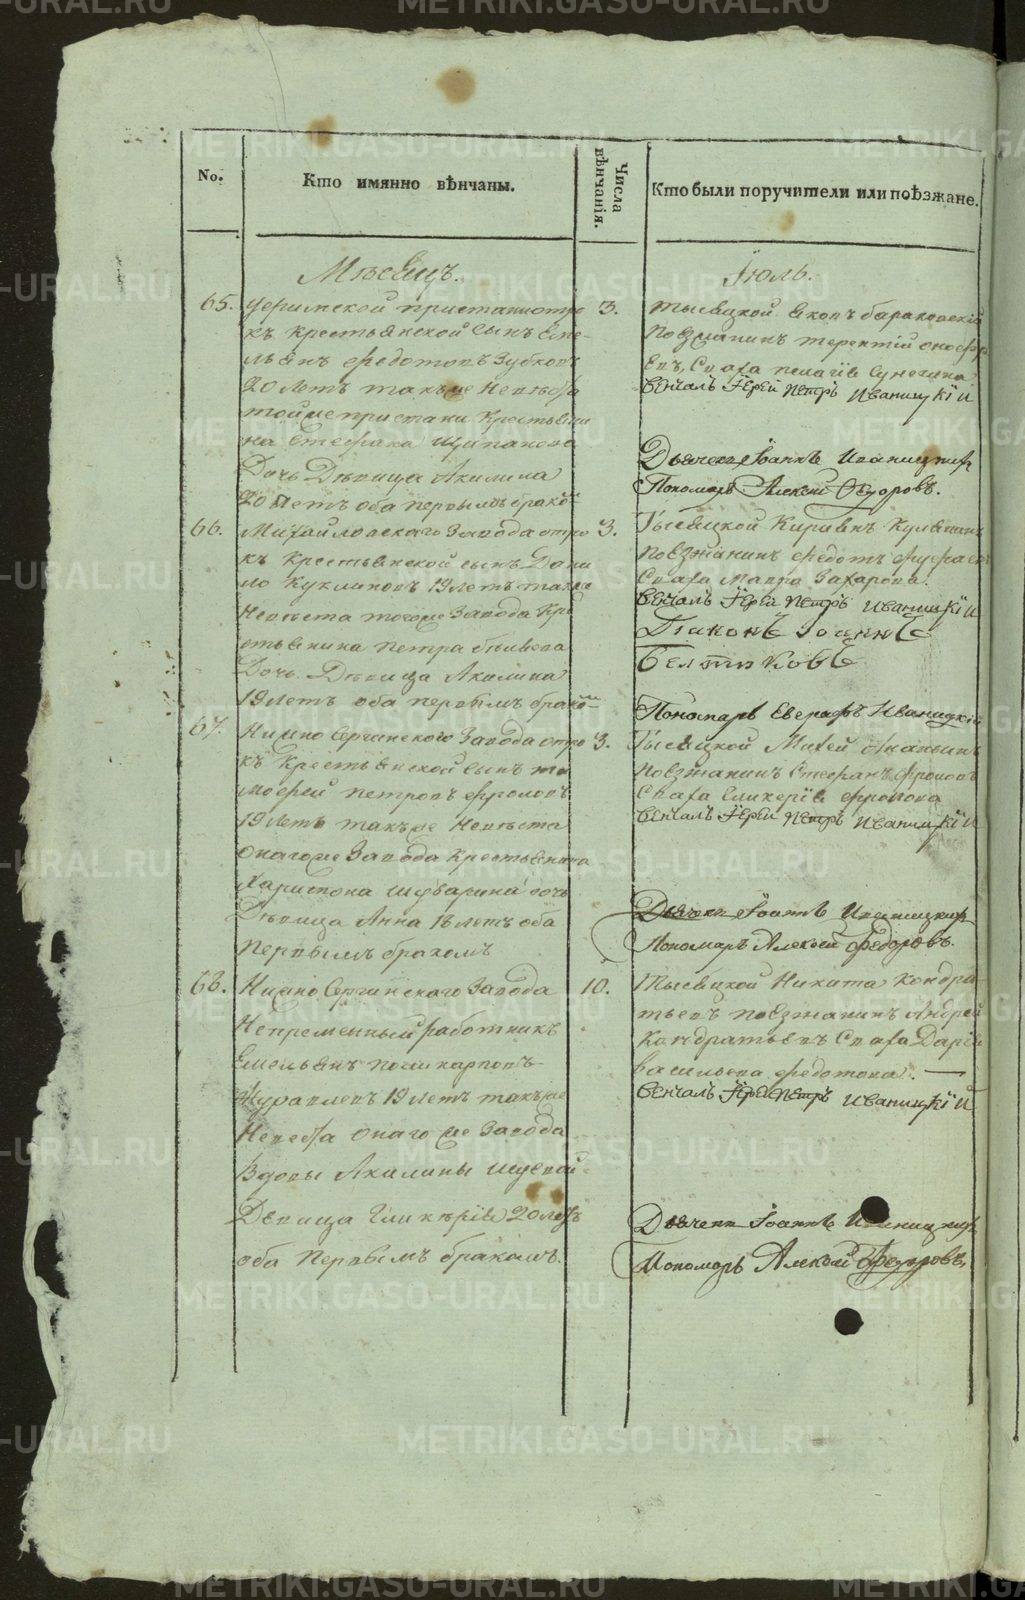 METRIKI.GASO-URAL.RU
No.
Кто имянно вѣнчаны.
Числа вѣнчанія.
Кто были поручители или поѣзжане.
Мѣсецъ.
Іюль.
65.
Уфимской пристани отро
къ крестьянской сынъ Еме-
льянъ Федотовъ Зубковъ
20 летъ такъже невѣста
тойже пристани крестьяни
на Стефана Щипанова
Дочь Дѣвица Акилина
20 летъ оба первымъ брако
3.
тысяцкой Яковъ
Поезжанинъ терентій
Сваха пелагія
Венчалъ Іерей Петръ Иваницкій
Дьячекъ Іоаннъ Иваницкій
Пономарь Алексей Федоровъ.
66.
Михайловскаго Завода отро
къ Крестьянской сынъ Дани
ло Куклиновъ 19 летъ также
Невѣста тогоже Завода Кре
стьянина петра
Дочь Девица Акилина
19 летъ оба первымъ брако
3.
Тысяцкой
Поезжанинъ Федотъ
Сваха Мавра Захарова.
Венчалъ Іерей Петръ Иваницкій
Діаконъ Іоаннъ
Белтиковъ
Пономарь Еверафъ Иваницкій
67.
Нижно Сергинского Завода отро
къ Крестьянской сынъ ти
мофей петровъ Фроловъ
19 летъ такъже Невѣста
Онагоже Завода Крестьянина
Харитона Шуварина дочь
Дѣвица Анна 18 летъ оба
первымъ бракомъ
3.
Тысяцкой Михей Ананьинъ
Поезжанинъ Стефанъ Фроловъ
Сваха Гликерія Фролова
Венчалъ Іерей Петръ Иваницкій
Дьячекъ Іоаннъ Иваницкій
Пономарь Алексей Федоровъ.
68.
Нижно Сергинскаго Завода
Непременный работникъ
Емельянъ поликарповъ
Журавлевъ 19 летъ такъже
Невеста Онагоже Завода
Вдовы Акилины
Девица Гликерія 20 летъ
оба первымъ бракомъ.
10.
Тысяцкой Никита Кондра-
тьевъ поезжанинъ Андрей
Кондратьевъ Сваха Дарія
васильева Федотова.
Венчалъ Іерей Петръ Иваницкій
Дьячекъ Іоаннъ Иваницкій
Пономарь Алексей Федоровъ.